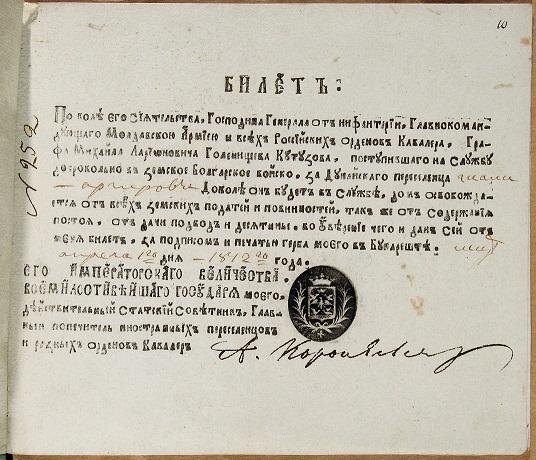 10
№ 252
БИЛЕТЪ:
По волѣ его сіятельства, Господина Генерала отъ инфантеріи, Главнокоман-
дующаго Молдавскою Арміею и всѣхъ Россійскихъ орденовъ Кавалера, Гра-
фа Михайла Ларіоновича Голенищева Кутузова, поступившаго на Службу
добровольно въ земское Болгарское войско, За Дунайскаго переселенца
Доколѣ онъ будетъ въ Службѣ, до ... освобожда-
ется отъ всѣхъ земскихъ податей и повинностей, такъ же отъ Содержанія
постоя, отъ дачи подводъ и десятины. во увѣреніе чего и данъ Сей отъ
меня билетъ, за подписомъ и печатью герба моего въ Букарештѣ:
апреля дня 1812 года.
его ИМПЕРАТОРСКАГО ВЕЛИЧЕСТВА
ВСЕМИЛОСТИВѢЙШАГО ГОСУДАРЯ моего,
дѣйствительный Статскій Совѣтникъ, Глав-
ный попечитель иностранныхъ переселенцовъ
и разныхъ орденовъ Кавалеръ
А. Коронелли